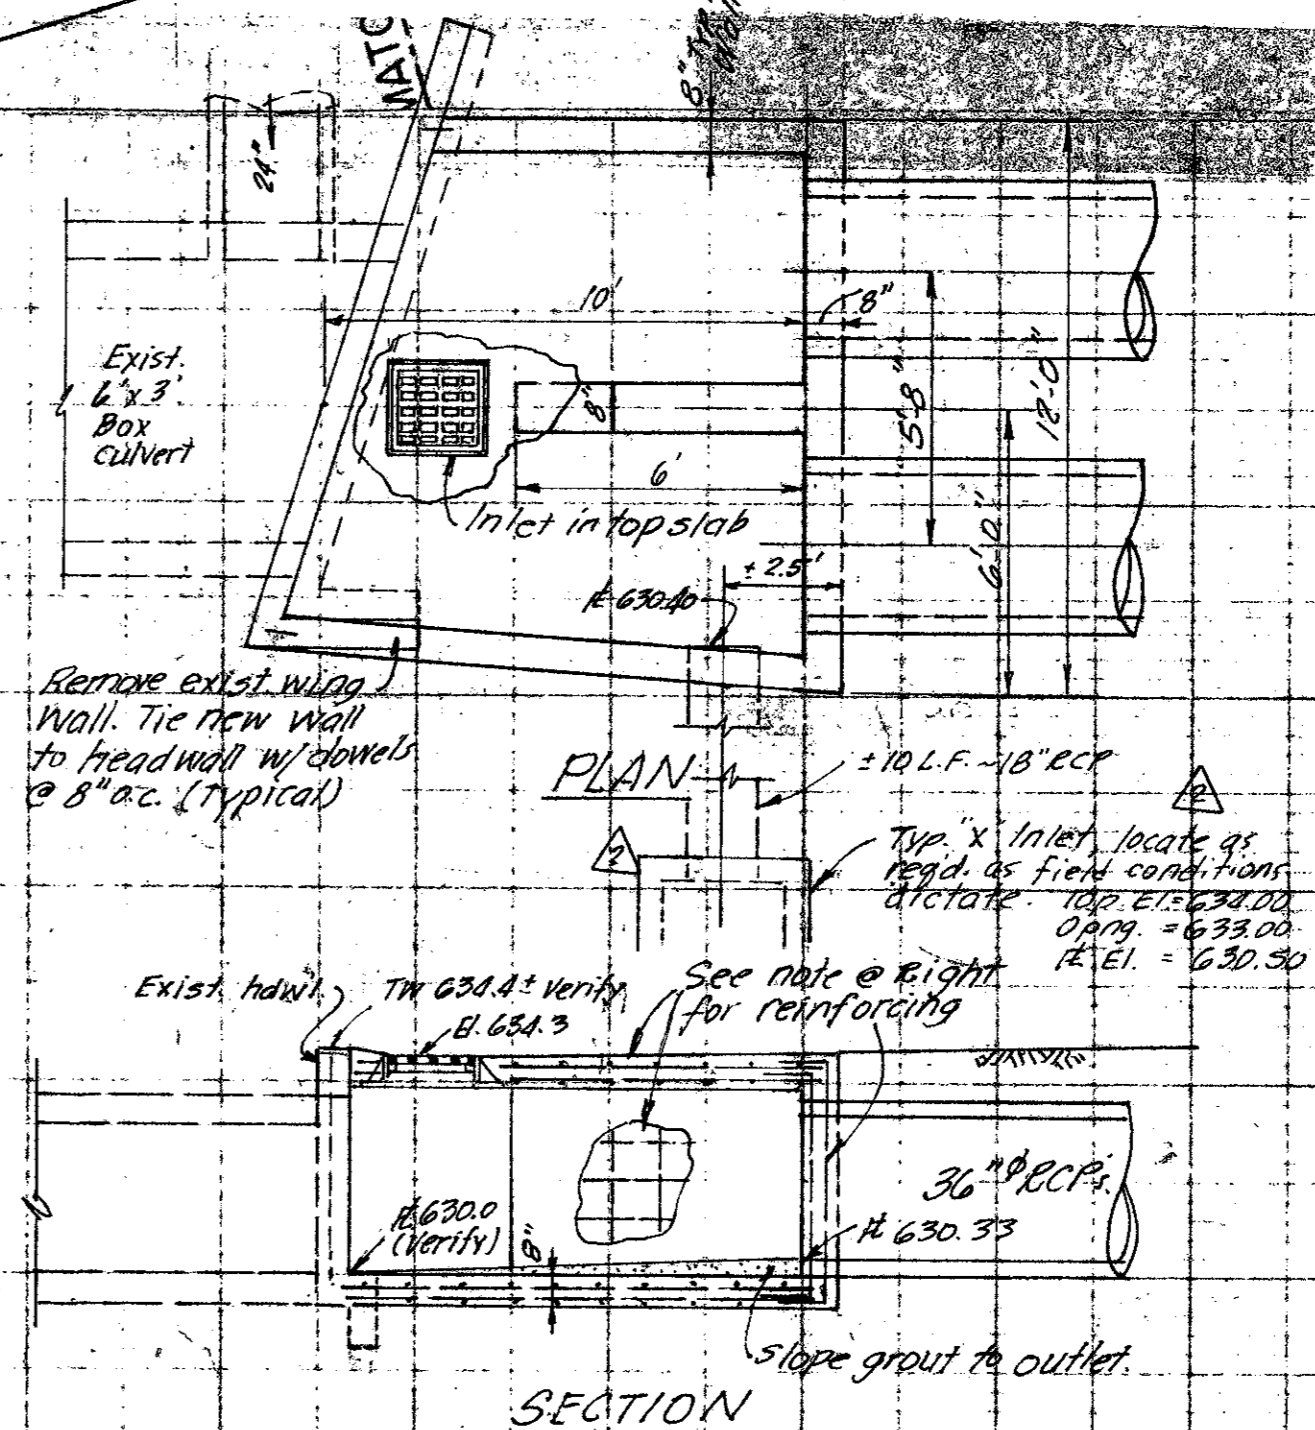 MATC
8" Typ.
24"
10'
8"
Exist.
6'x3'
Box
culvert
8"
5'-8"
12'-0"
6'
6'-0"
Inlet in top slab
± 2.5'
℄ 630.40
Remove exist. wing
wall. Tie new wall
to headwall w/dowels
@ 8" o.c. (Typical)
PLAN
±10 L.F. ~18" RCP
2
2
Typ. "X" Inlet, locate as
req'd. as field conditions
dictate. Top El.=634.00
Opng. =633.00
℄ El. = 630.50
Exist. hdwl.
TW 634.4± verify
El. 634.3
See note @ Right
for reinforcing
36"φ RCP's.
℄ 630.0
(verify)
8"
℄ 630.33
slope grout to outlet.
SECTION